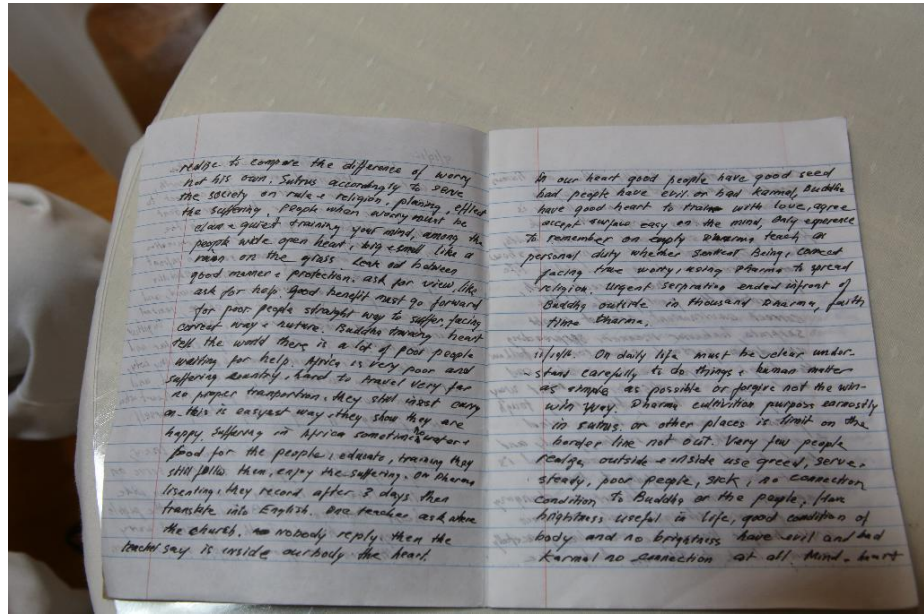 realize to compare the difference of worry
not his own, Sutras accordingly to serve
the society on rule & religion, planing, effect
the suffering, people when worry must be
clam & quiet training your mind, among the
people wide open heart, big & small like a
moon on the grass between
good manner & protection. ask for view, like
ask for help. good benefit must go forward
for poor people straight way to suffer, facing
correct way & nature. Buddha training heart
tell the world there is a lot of poor people
waiting for help. Africa is very poor and
suffering country, hard to travel very far
no proper tranportion, they still insest carry
on this is easyast way, they show they are
happy. Suffering in Africa sometimes no water &
food for the people, educate, training they
still follow them, enjoy the suffering. On Dharma
lisenting, they record after 3 days then
translate into English. One teacher ask where
the church. nobody reply then the
teacher say is inside our body the heart.
In our heart good people have good seed
bad people have evil on bad karmal, Buddha
have good heart to train with love, agree
accept easy on the mind, Only
to remember on empty Dharma teach, or
personal duty whether Being, correct
facing true worry, using Dharma to spread
religion. Urgent ended infront of
Buddha outside in thousand Dharma, faith
time Dharma.
On daily life must be clear under-
stand carefully to do things & human matter
as simple as possible or forgive not the win-
win way. Dharma cultivition purpose earnostly
in sutras, or other places is limit on the
border line not out. Very few people
realize, outside & inside use greed, serve,
steady, poor people, sick, no connection
condition to Buddha or the people, have
brightness useful in life, good condition of
body and no brightness have evil and bad
karmal no connection at all mind & heart